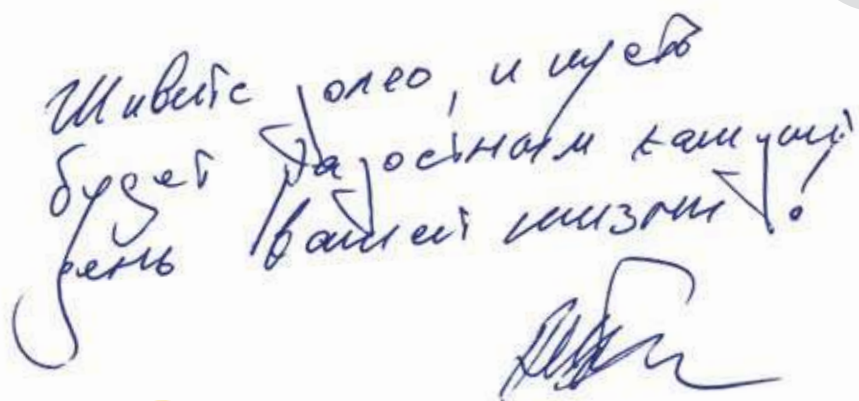 Живите долго, и пусть
будет радостным каждый
день вашей жизни!